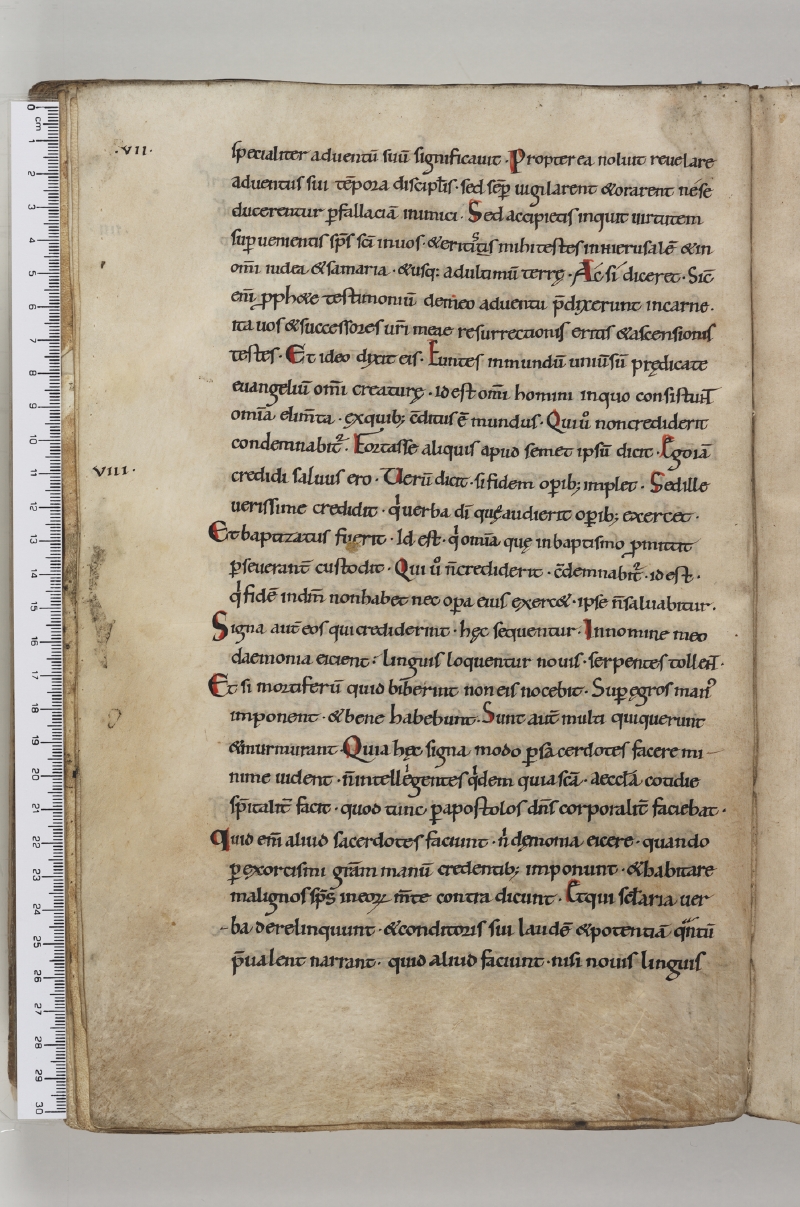 .VII.
specialiter aduentū suū significauit · Propterea noluit reuelare
aduentus sui tēpora disciplis · sed sēp uigilarent &orarent nése
ducerentur ꝑfallaciā inimici · Sed accipietis inquit uirtutem
superuenientis sp̄s sc̄i inuos · &eritis mihi testes inhierusalē &in
om̄i iudea &samaria · &usq; adultimū terrę · Ac si diceret · Sic̄
em̄ ꝓph&e testimoniū demeo aduentu p̄dixerunt incarne ·
ita uos &successores ur̄i meae resurrectionis eritis &ascensionis
testes · Et ideo dixit eis · Euntes inmundū uniūsū prędicate
euangeliū om̄i creaturę · id est om̄i homini inquo consistunt̄
om̄ia elim̄ta · exquib; c̄ditus ē mundus · Qui ů noncrediderit
condemnabit᷑ · Fortasse aliquis apud semet ipsū dicit · Ego iā
VIII ·
credidi saluus ero · Uerū dicit · si fidem oꝑib; implet · Sed ille
uerissime credidit · qͥ uerba dī quę audierit oꝑib; exercet ·
Et baptizatus fuerit · Id est · qͥ omīa quę inbaptismo ꝓmittit
ꝑseuerant̄ custodit · Qui ů n̄crediderit · c̄demnabit᷑ · id est ·
qͥ fidē indn̄m nonhabet nec oꝑa eius exerc& · ipse n̄saluabitur ·
Signa aut̄ eos qui crediderint · hęc sequentur · Innomine meo
daemonia eicient · linguis loquentur nouis · serpentes tollent̄ ·
Et si mortiferū quid biberint non eis nocebit · Suꝑ ęgros man᷒
imponent · &bene habebunt · Sunt aut̄ multi qui querunt
&murmurant · Quia hęc signa modo ꝑsacerdotes facere mi-
nime uident · n̄intellegentes qͥdem quia sc̄a · aeccl̄a cotidie
sp̄italit̄ facit · quod tunc ꝑapostolos dn̄s corporalit̄ faciebat ·
Quid em̄ aliud sacerdotes faciunt · nͥ demonia eicere · quando
ꝑ exorcismi gr̄am manū credentib; imponunt · &habitare
malignos sp̄s ineoꝝ m̄te contradicunt · Et qui sc̄laria uer
-ba derelinquunt · &conditoris sui laudē &potentiā qͣntū
p̄ualent narrant · quid aliud faciunt · nisi nouis linguis